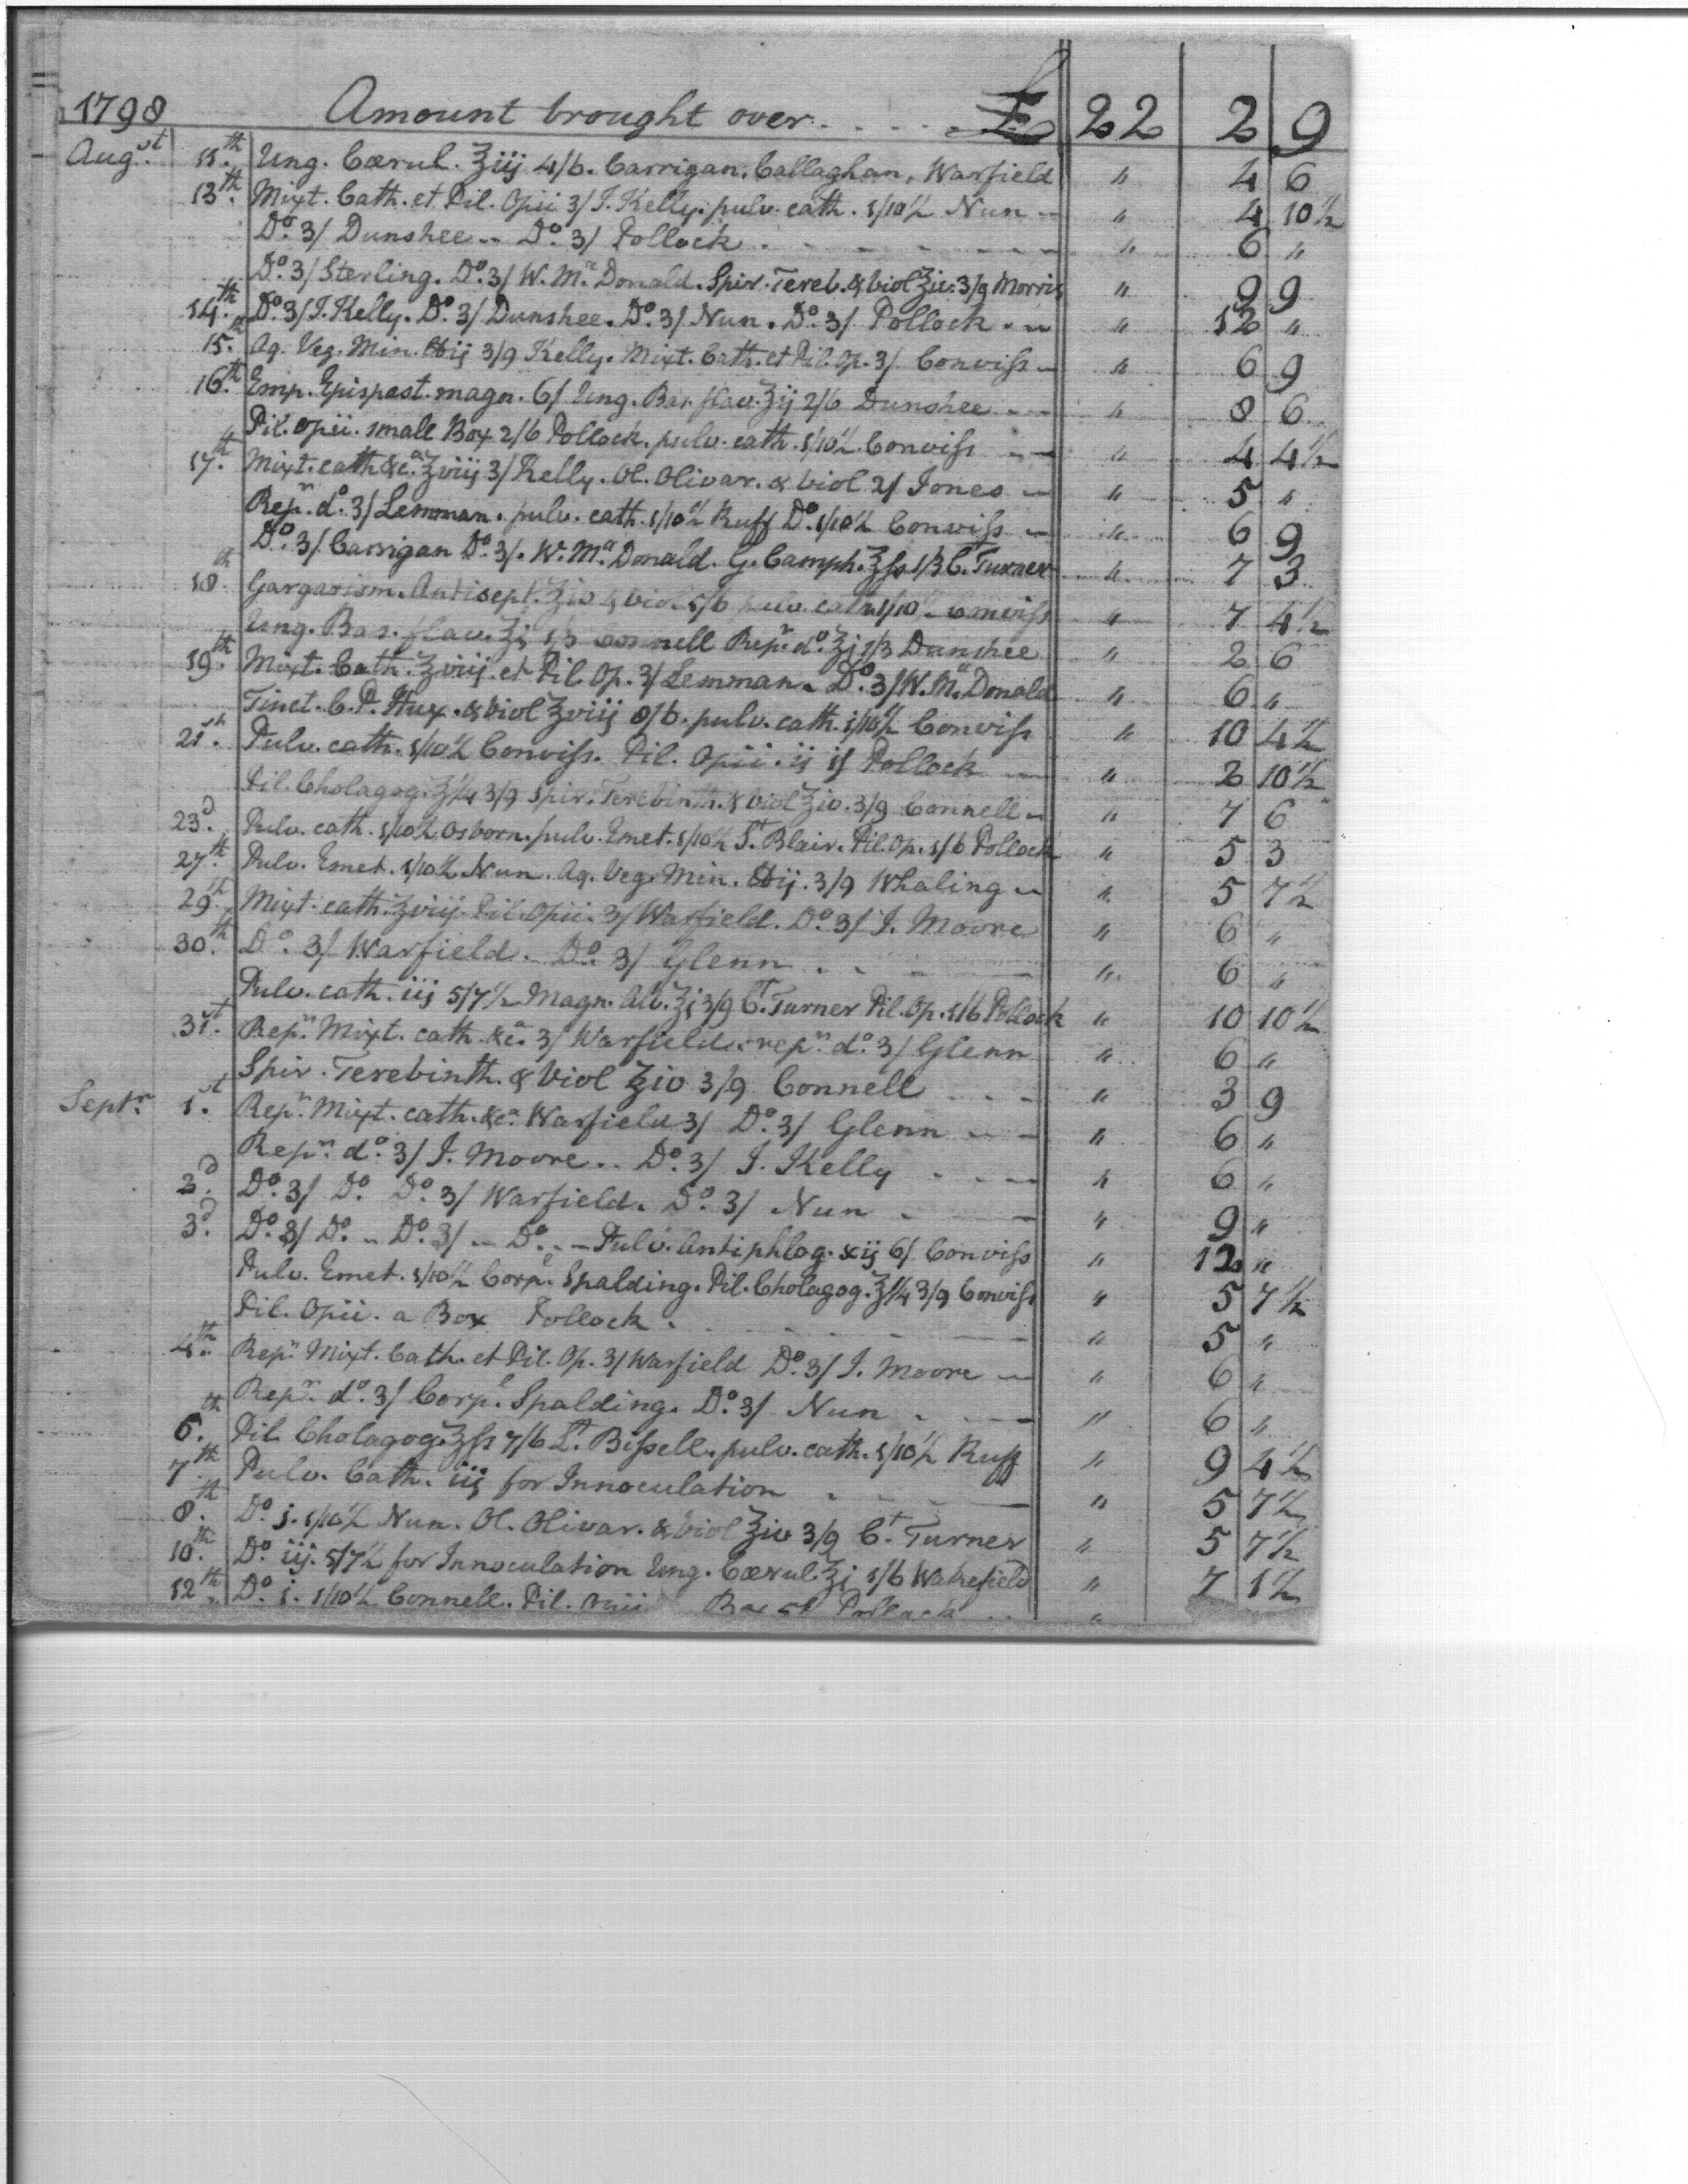 1798 Amount brought over. . . . . £ 22 2 9
Augst. 11th. Ung. Cærul. ℥iij 4/6. Carrigan. Callaghan, Warfield " 4 6
13th. Mixt. Cath. et Pil. Opii 3/ J. Kelly. pulv. cath. 1/10½ Nun " 4 10½
Do. 3/ Dunshee .. Do. 3/ Pollock . " 6 "
Do. 3/ Sterling. Do. 3/ W. Mc. Donald. Spir. Tereb. & viol ℥iv. 3/9 Morris " 9 9
14th. Do. 3/ J. Kelly. Do. 3/ Dunshee. Do. 3/ Nun. Do. 3/ Pollock. " 12 "
15th. Aq. Veg. Min. ℔ij 3/9 Kelly. Mixt. Cath. et Pil. Op. 3/ Conviss " 6 9
16th. Emp. Epispast. magn. 6/ Ung. Bas. flav. ℥ij 2/6 Dunshee " 8 6
Pil. opii. small Box 2/6 Pollock. pulv. cath. 1/10½ Conviss " 4 4½
17th. Mixt. cath &ca. ℥viij 3/ Kelly. Ol. Olivar. & viol 2/ Jones " 5 "
Repn. do. 3/ Lemman. pulv. cath. 1/10½ Ruff Do. 1/10½ Conviss " 6 9
Do. 3/ Carrigan Do. 3/. W. Mc Donald. G. Camph. ℥ss 1/3 Ct. Turner " 7 3
18th. Gargarism. Antisept. ℥iv & viol. 5/6 pulv. cath 1/10½ Conviss " 7 4½
Ung. Bas. flav. ℥j 1/3 Connell Repn. do. ℥j 1/3 Dunshee " 2 6
19th. Mixt. Cath. ℥viij et Pil. Op. 3/ Lemman. Do. 3/ W. Mc. Donald " 6 "
Tinct. C. P. Hux. & viol ℥viij 8/6. pulv. cath. 1/10½ Conviss " 10 4½
21st. Pulv. cath. 1/10½ Conviss. Pil. Opii. ij 1/ Pollock " 2 10½
Pil. Cholagog. ℥¼ 3/9 Spir. Terebinth. & viol ℥iv. 3/9 Connell " 7 6
23d. Pulv. cath. 1/10½ Osborn. pulv. Emet. 1/10½ St. Blair. Pil. Op. 1/6 Pollock " 5 3
27th. Pulv. Emet. 1/10½ Nun. Aq. Veg. Min. ℔ij. 3/9 Whaling " 5 7½
29th. Mixt. cath. ℥viij Pil. Opii. 3/ Warfield. Do. 3/ J. Moore " 6 "
30th. Do. 3/ Warfield. Do. 3/ Glenn . . " 6 "
Pulv. cath. iij 5/7½ Magn. Alb. ℥j 3/9 Ct. Turner Pil. Op. 1/6 Pollock " 10 10½
31st. Repn. Mixt. cath. &ca. 3/ Warfield. repn. do. 3/ Glenn " 6 "
Spir. Terebinth. & viol ℥iv 3/9 Connell " 3 9
Septr. 1st. Repn. Mixt. cath. &ca. Warfield 3/ Do. 3/ Glenn " 6 "
Repn. do. 3/ J. Moore .. Do. 3/ J. Kelly " 6 "
2d. Do. 3/ Do. Do. 3/ Warfield. Do. 3/ Nun " 9 "
3d. Do. 3/ Do. .. Do. 3/ .. Do. .. Pulv. antiphlog. xij 6/ Conviss " 12 "
Pulv. Emet. 1/10½ Corpl. Spalding. Pil. Cholagog. ℥¼ 3/9 Conviss " 5 7½
Pil. Opii. a Box Pollock . " 5 "
4th. Repn. Mixt. Cath. et Pil. Op. 3/ Warfield Do. 3/ J. Moore " 6 "
Repn. do. 3/ Corpl. Spalding. Do. 3/ Nun " 6 "
6th. Pil. Cholagog. ℥ss 7/6 Lt. Bissell. pulv. cath. 1/10½ Ruff " 9 4½
7th. Pulv. Cath. iij for Innoculation " 5 7½
8th. Do. j. 1/10½ Nun. Ol. Olivar. & viol ℥iv 3/9 Ct. Turner " 5 7½
10th. Do. iij. 5/7½ for Innoculation Ung. Cærul. ℥j 1/6 Wakefield " 7 1½
12th. Do. j. 1/10½ Connell. Pil. Opii Box 5/ Pollock "